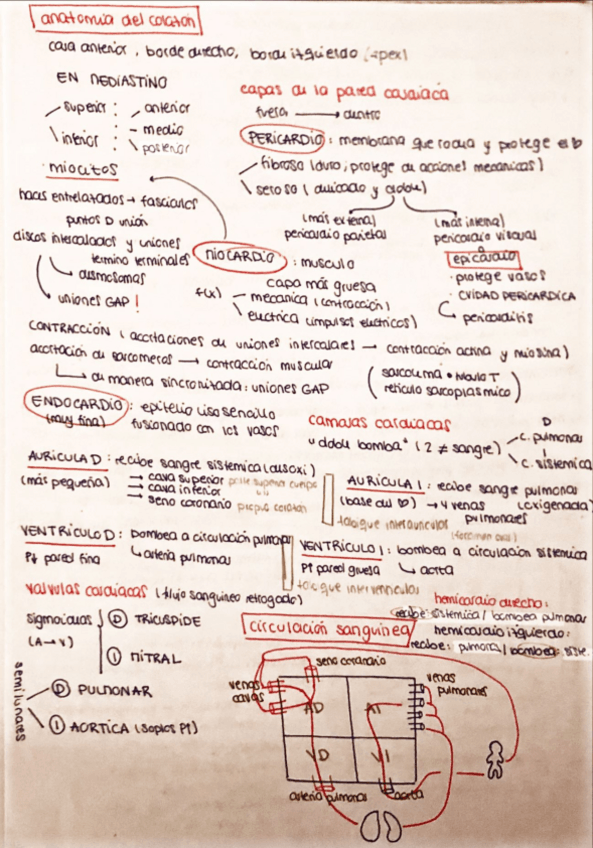 anatomia del corazón
cara anterior, borde derecho, borde izquierdo (apex)
EN MEDIASTINO
superior: anterior
- medio
inferior: posterior
miocitos
haces entrelazados → fasciculos
puntos D unión
discos intercalados y uniones
termino terminales
desmosomas
uniones GAP!
capas de la pared cardiaca
fuera → dentro
PERICARDIO: membrana que rodea y protege el
fibroso (duro, protege de acciones mecanicas)
seroso (delicado y doble)
(más externa)
pericardio parietal
(más interna)
pericardio visceral
epicardio
· protege vasos
· CVIDAD PERICARDICA
pericarditis
MIOCARDIO: musculo
capa más gruesa
f(x) mecanica (contracción)
electrica (impulsos electricos)
CONTRACCIÓN (acortaciones de uniones intercalares → contracción actina y miosina)
acortación de sarcomeros → contracción muscular
de manera sincronizada: uniones GAP
(sarcolema · túbulo T
reticulo sarcoplasmico)
ENDOCARDIO: epitelio liso sencillo
(muy fina) fusionado con los vasos
camaras cardiacas
"doble bomba" (2 ≠ sangre)
D
c. pulmonar
I
c. sistemica
AURICULA D: recibe sangre sistemica (desoxi)
(más pequeña) → cava superior parte superior cuerpo
→ cava inferior " "
→ seno coronario propio corazón
AURÍCULA I: recibe sangre pulmonar
(base del ) → 4 venas (oxigenada)
pulmonares
tabique interauricular
(foramen oval)
VENTRÍCULO D: bombea a circulación pulmonar
P↓ pared fina ↳ arteria pulmonar
VENTRICULO I: bombea a circulación sistemica
P↑ pared gruesa ↳ aorta
tabique interventricular
valvulas cardiacas (flujo sanguineo retrogado)
sigmoideas
(A→V)
D TRICUSPIDE
I MITRAL
semilunares
D PULMONAR
I AORTICA (soplos P↑)
hemicardio derecho:
recibe: sistemica / bombea pulmonar
hemicardio izquierdo:
recibe: pulmonar / bombea: siste.
circulación sanguinea
seno coronario
venas
cavas
venas
pulmonares
AD
AI
VD
VI
arteria pulmonar
aorta